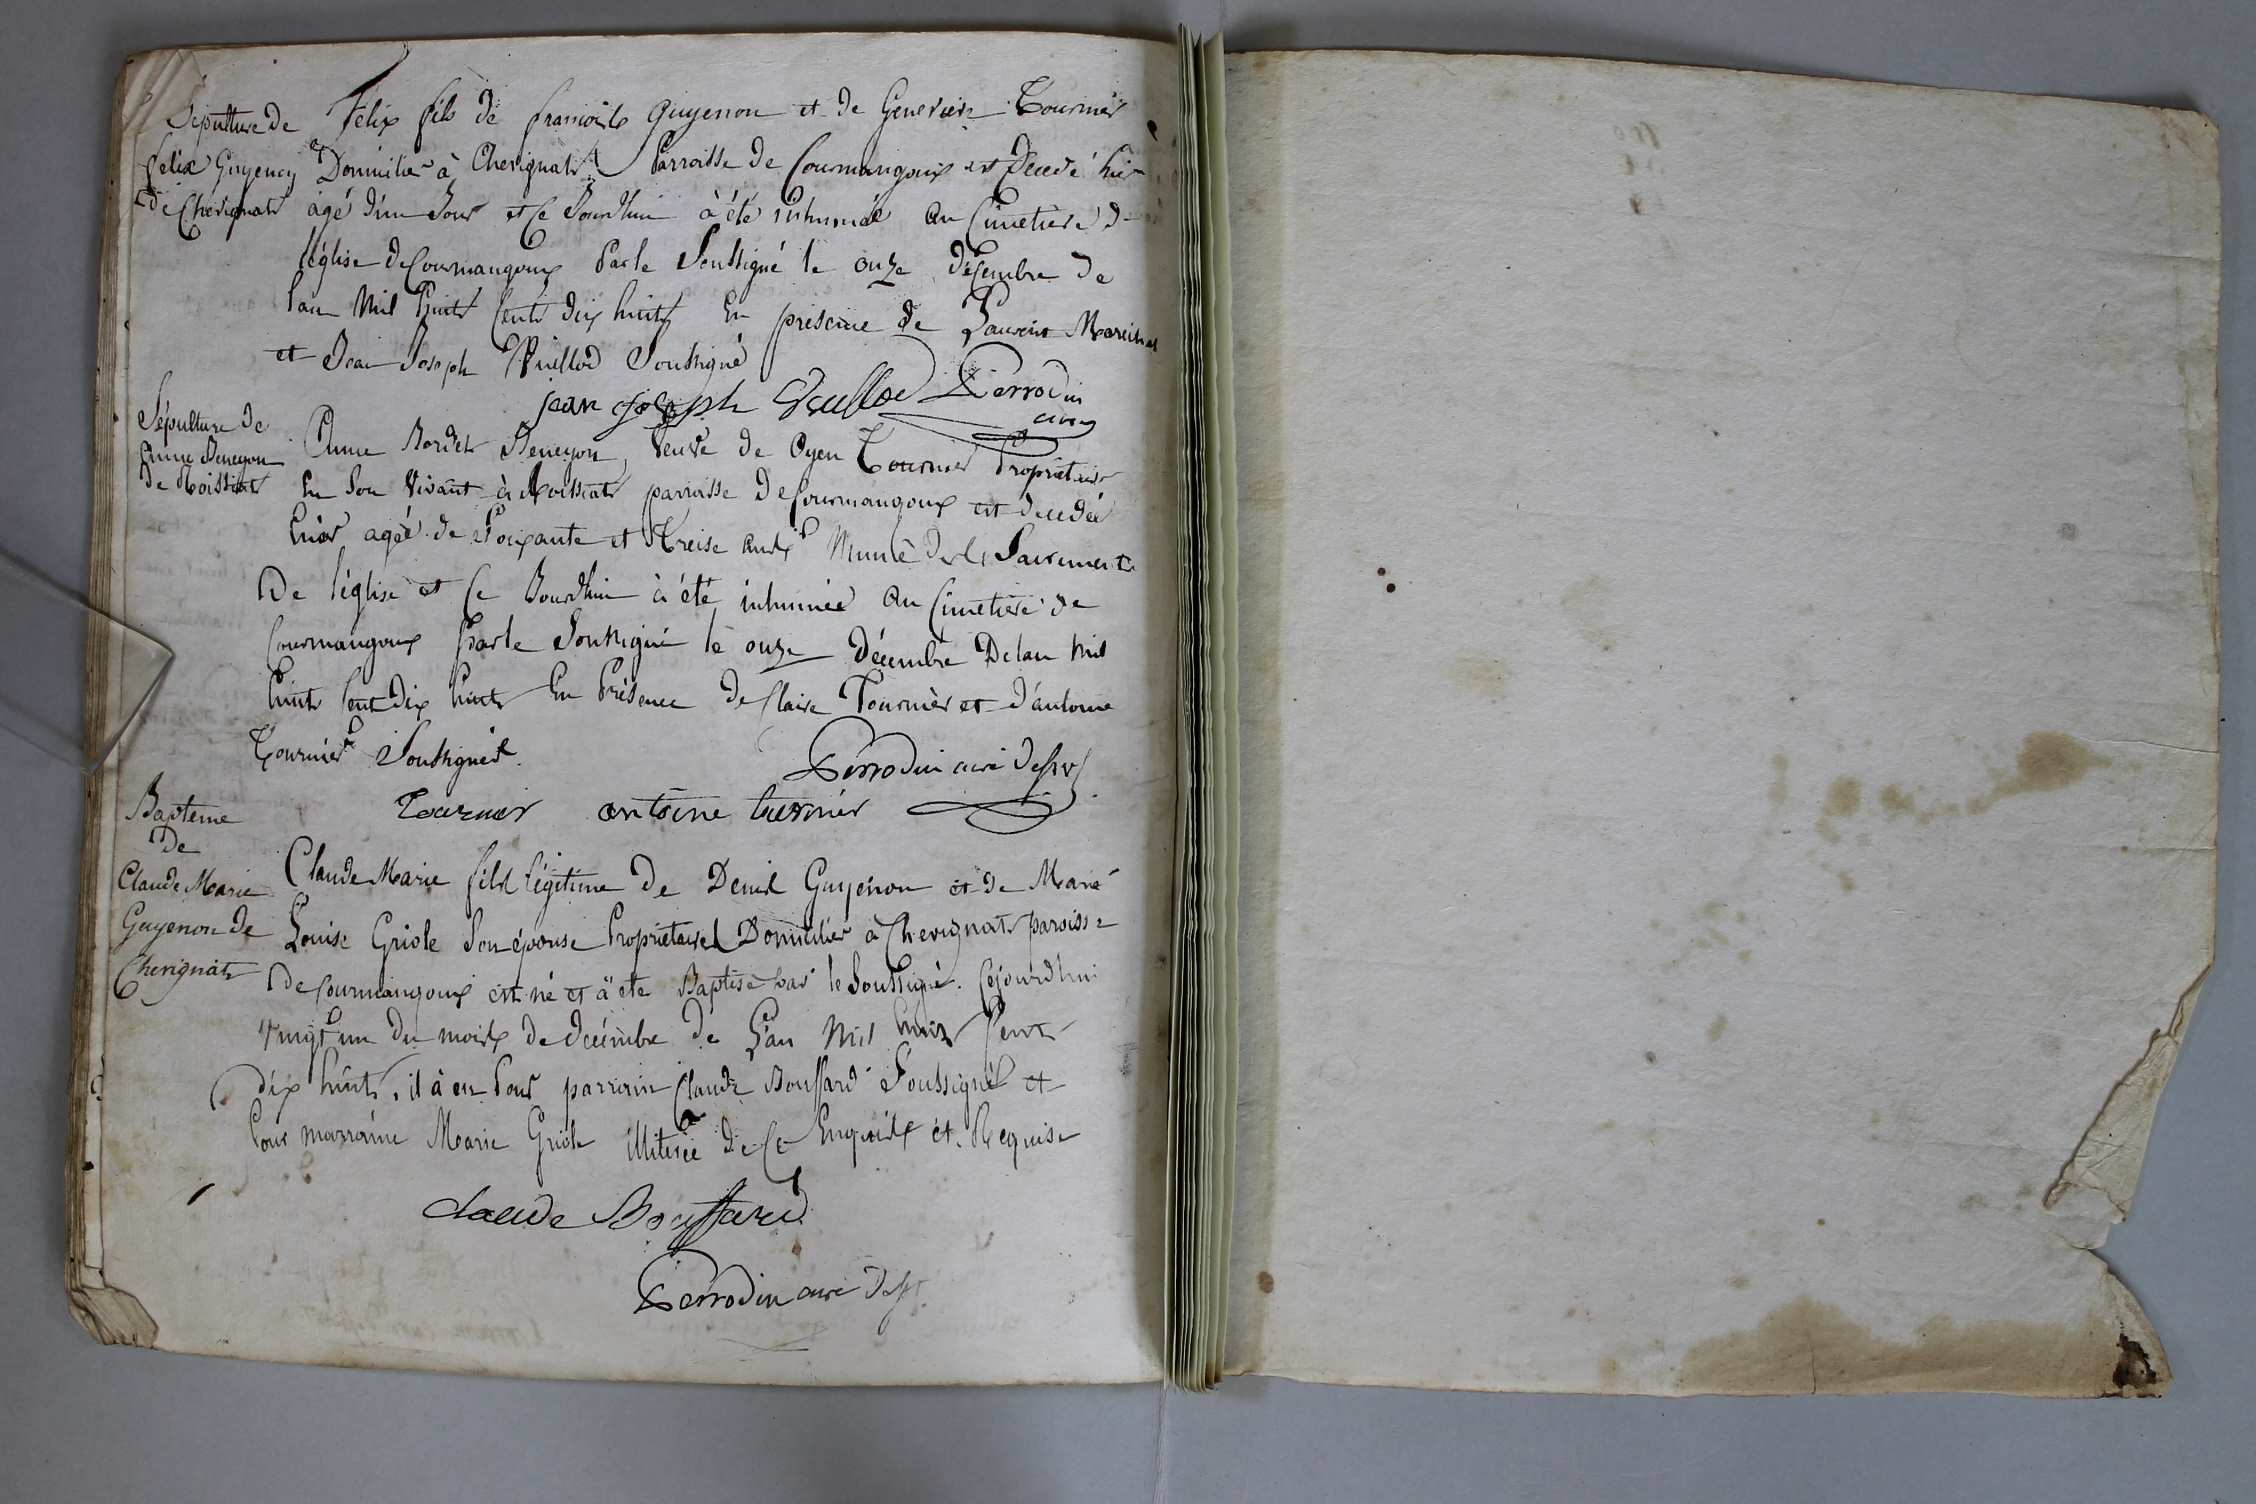 Sépulture de
felix Guyenon
de Chevignat
Félix fils de françois Guyenon et de Genevieve Tournier
Domicilié à Chevignat Parroisse de Courmangoux est Décedé hier
agé d'un Jour et Ce Jourdhui à été inhumé au Cimetiere de
l'église de Courmangoux Par le Soussigné le onze décembre de
l'an Mil huit Cent dix huit En présence de Laurent Marechal
et Jean Joseph Vuillod Soussigné
jean joseph Vuillod Perrodin
curé
Sépulture de
Anne Beneyon
de Roissiat
Anne Bordet Beneyon, Veuve de Oyen Tournier Propriétaire
En Son Vivant à Roissiat parroisse de Courmangoux est décedée
hier agée de Soixante et Treise ans Munie des Sacrements
De l'église et Ce Jourdhui à été inhumée au Cimetiere de
Courmangoux Par le Soussigné le onze décembre De lan Mil
huit Cent Dix huit En Présence de Claire Tournier et d'antoine
Tournier Soussignés.
Perrodin curé
Tournier antoine turnier
Bapteme
De
Claude Marie
Guyenon de
Chevignat
Claude Marie fils légitime de Denis Guyenon et de Marie
Louise Griole Son épouse Propriétaires Domiciliés à Chevignat paroisse
De Courmangoux est né et à eté Baptisé par le Soussigné. Cejourdhui
Vingt un du mois de décembre de L'an Mil huit Cent
dix huit, il à eu Pour parrain Claude Bouffard Soussigné et
Pour marraine Marie Griole illiterée de Ce Enquise et Requise
Claude Bouffard
Perrodin curé